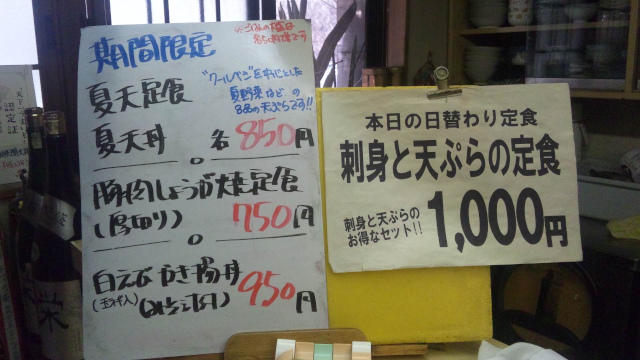 期間限定
夏天定食
"クールベジ"を中心とした
夏野菜などの
8品の天ぷらです!!
夏天丼 各850円
豚肉しょうが焼定食
(厚切り) 750円
白えびかき揚丼
(玉ねぎ入) 950円
本日の日替わり定食
刺身と天ぷらの定食
刺身と天ぷらの
お得なセット!!
1,000円
認定証
栄